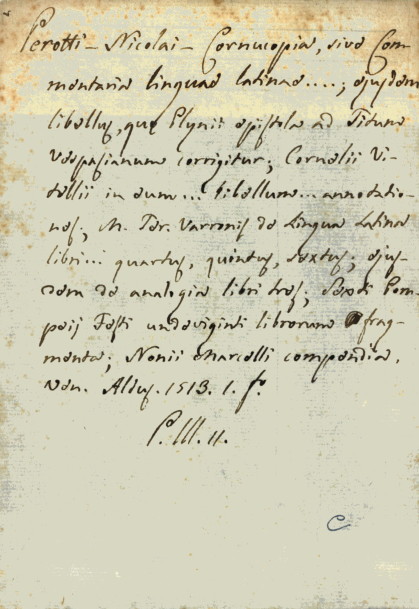 Perotti - Nicolai - Cornucopia, sive Com-
mentaria linguae latinae....; ejusdem
libellus, quo Plynii epistola ad Titum
Vespasianum corrigitur; Cornelii Vi-
tellii in eum... libellum... annotatio-
nes; M. Ter. Varronis de Lingua Latina
libri... quartus, quintus, sextus; ejus-
dem de analogia libri tres; Sexti Pom-
peij Festi undeviginti librorum frag-
menta; Nonii Marcelli compendia,
ven. Aldus. 1513. 1. fo.
P. III. 11.
C